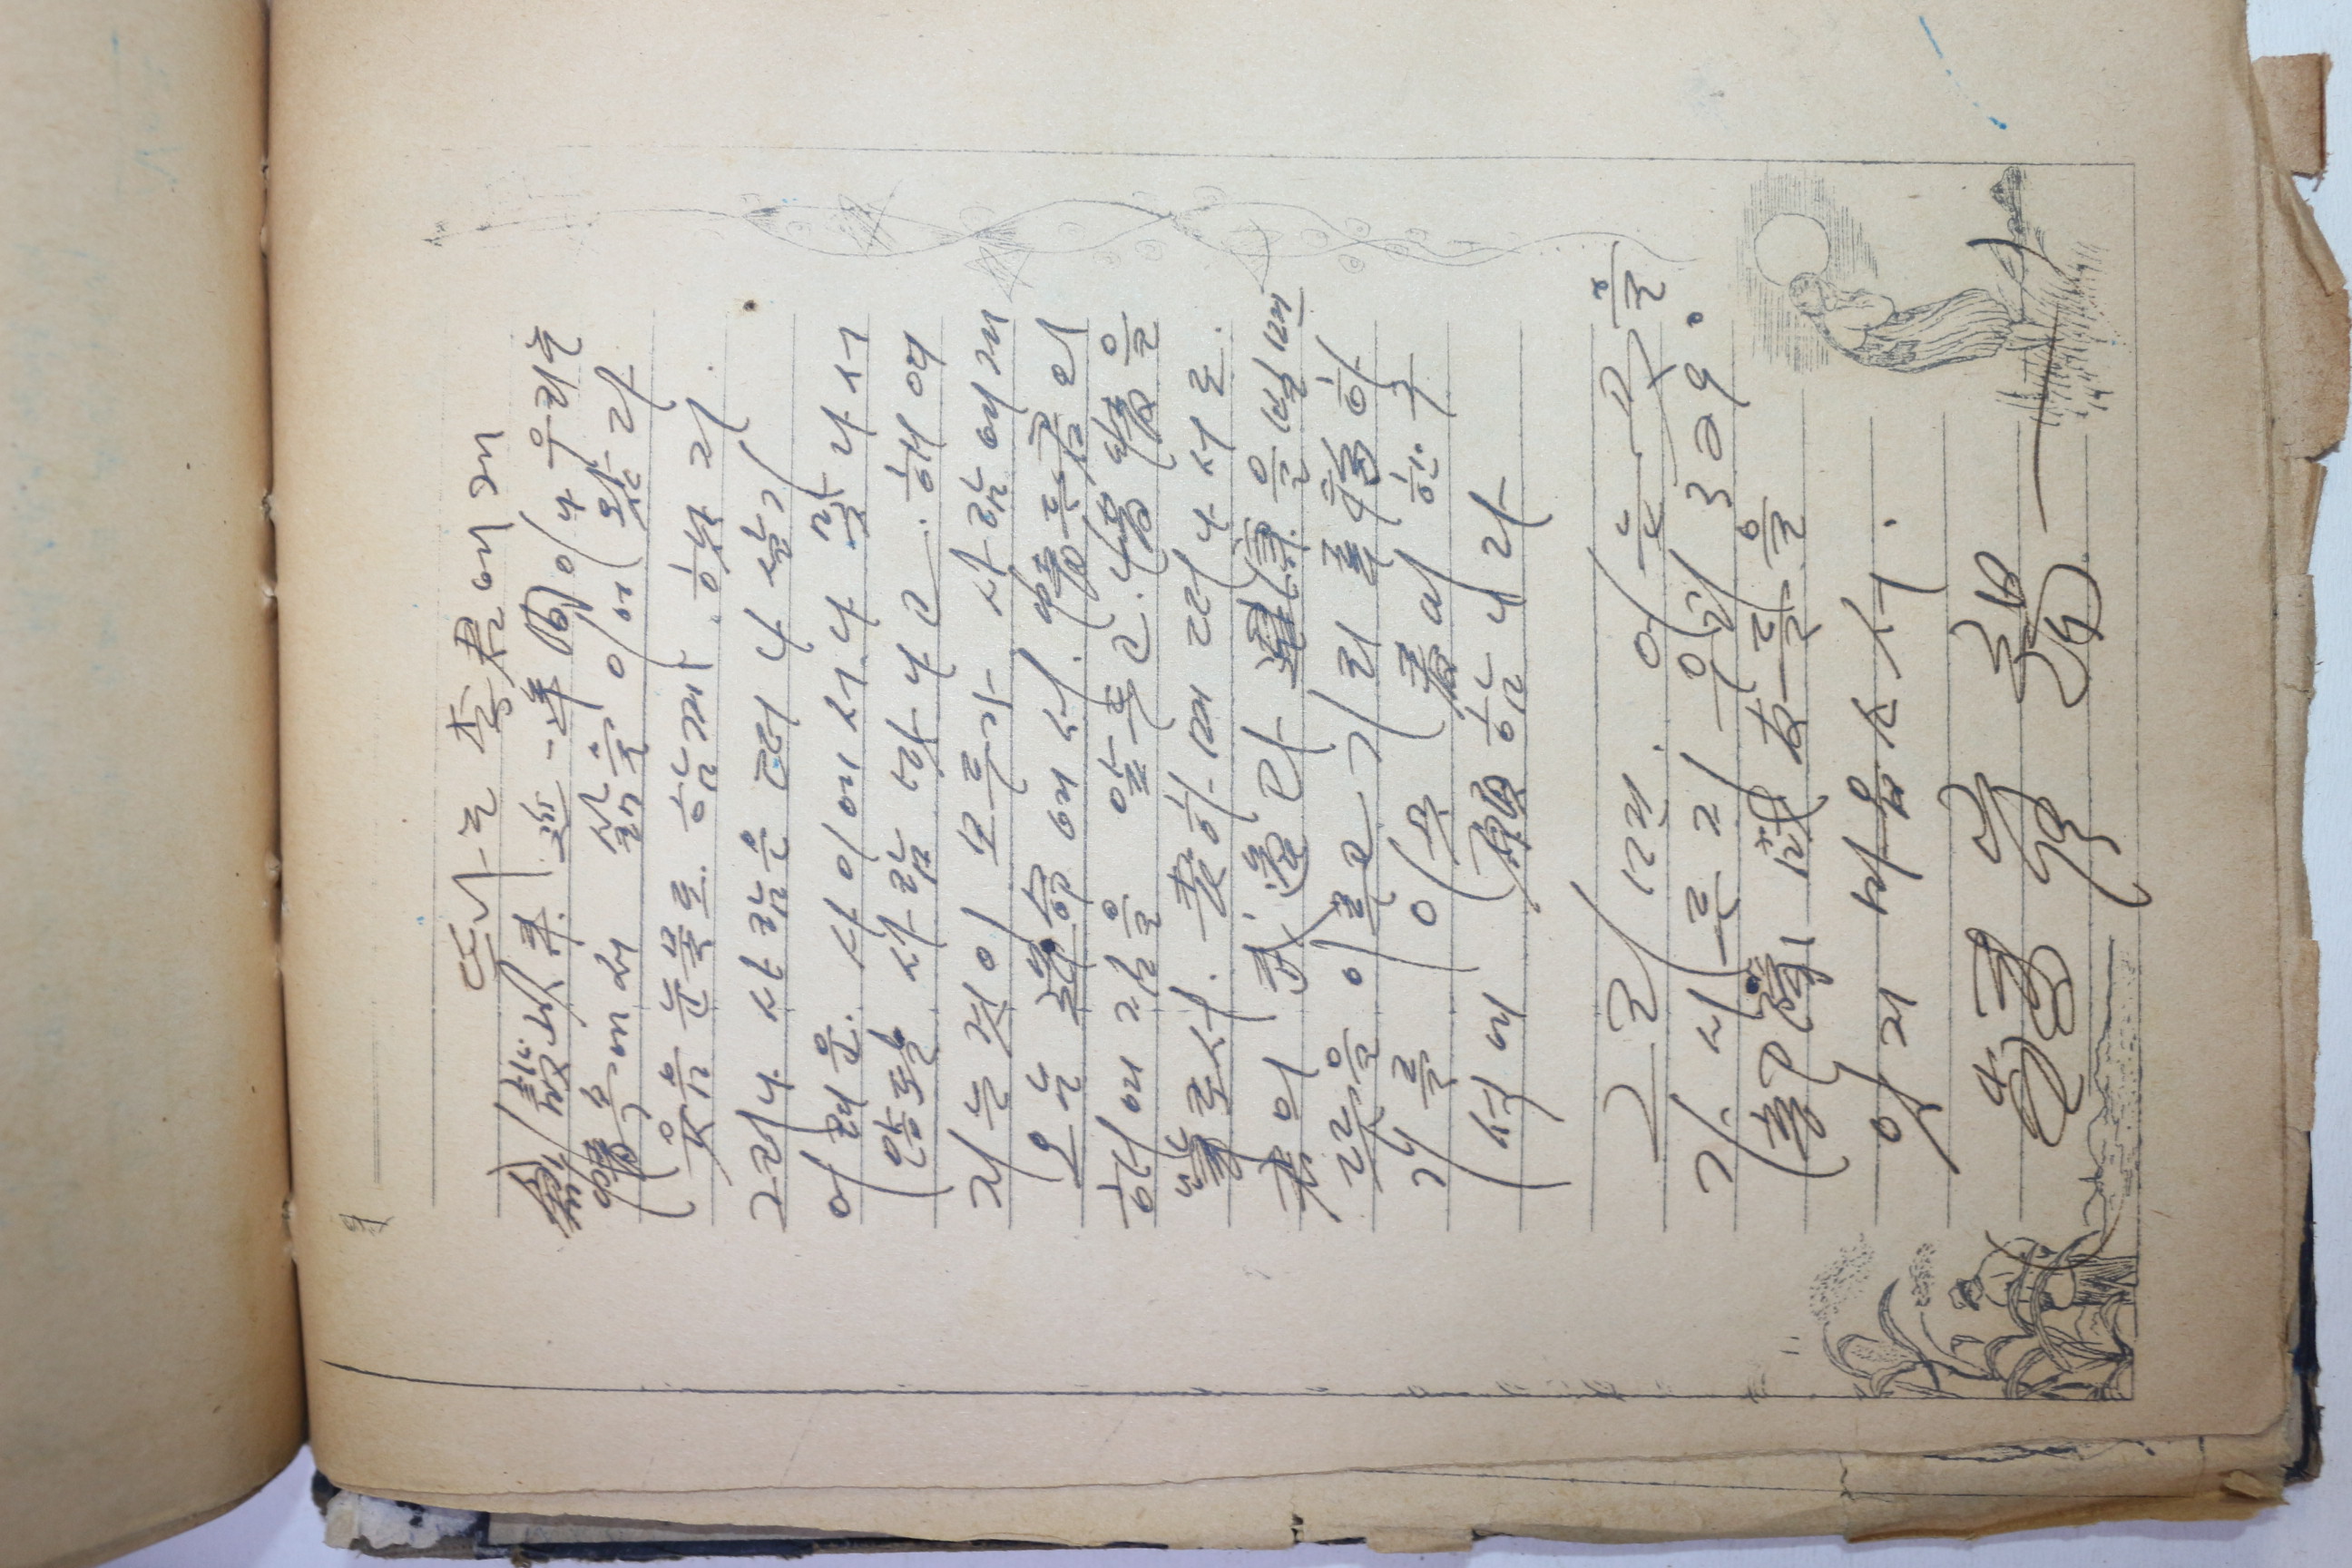 떠나는 李君에게
創設以來 近一年間이나 우리는
情속에서 삶을 이어 왔다
웃음 눈물도 함께 했지.
그러나 사람은 떠나 살기
어려운. 사이에서나 맞나서
않될 사람 맛나고. 해여
지는것이 모두가 사람에게
오는 運命에서. 情든君의
해여짐을 앞두고. 情을
로서. 하며 떠나서도.
君의 武運과 健康을 빌며
뜻을 이루고 기리 하
기를 이곳 春川 한구
석에 願합니다
그러면. 어느곳을
가시루지 우리 329
記隊 戰友들을
잊지 마옵소서.